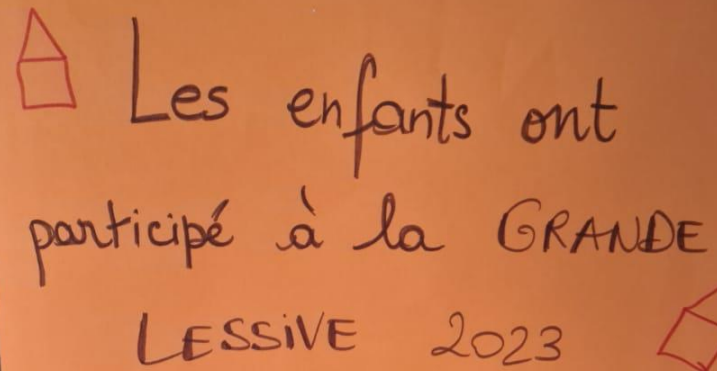 Les enfants ont
participé à la GRANDE
LESSiVE 2023